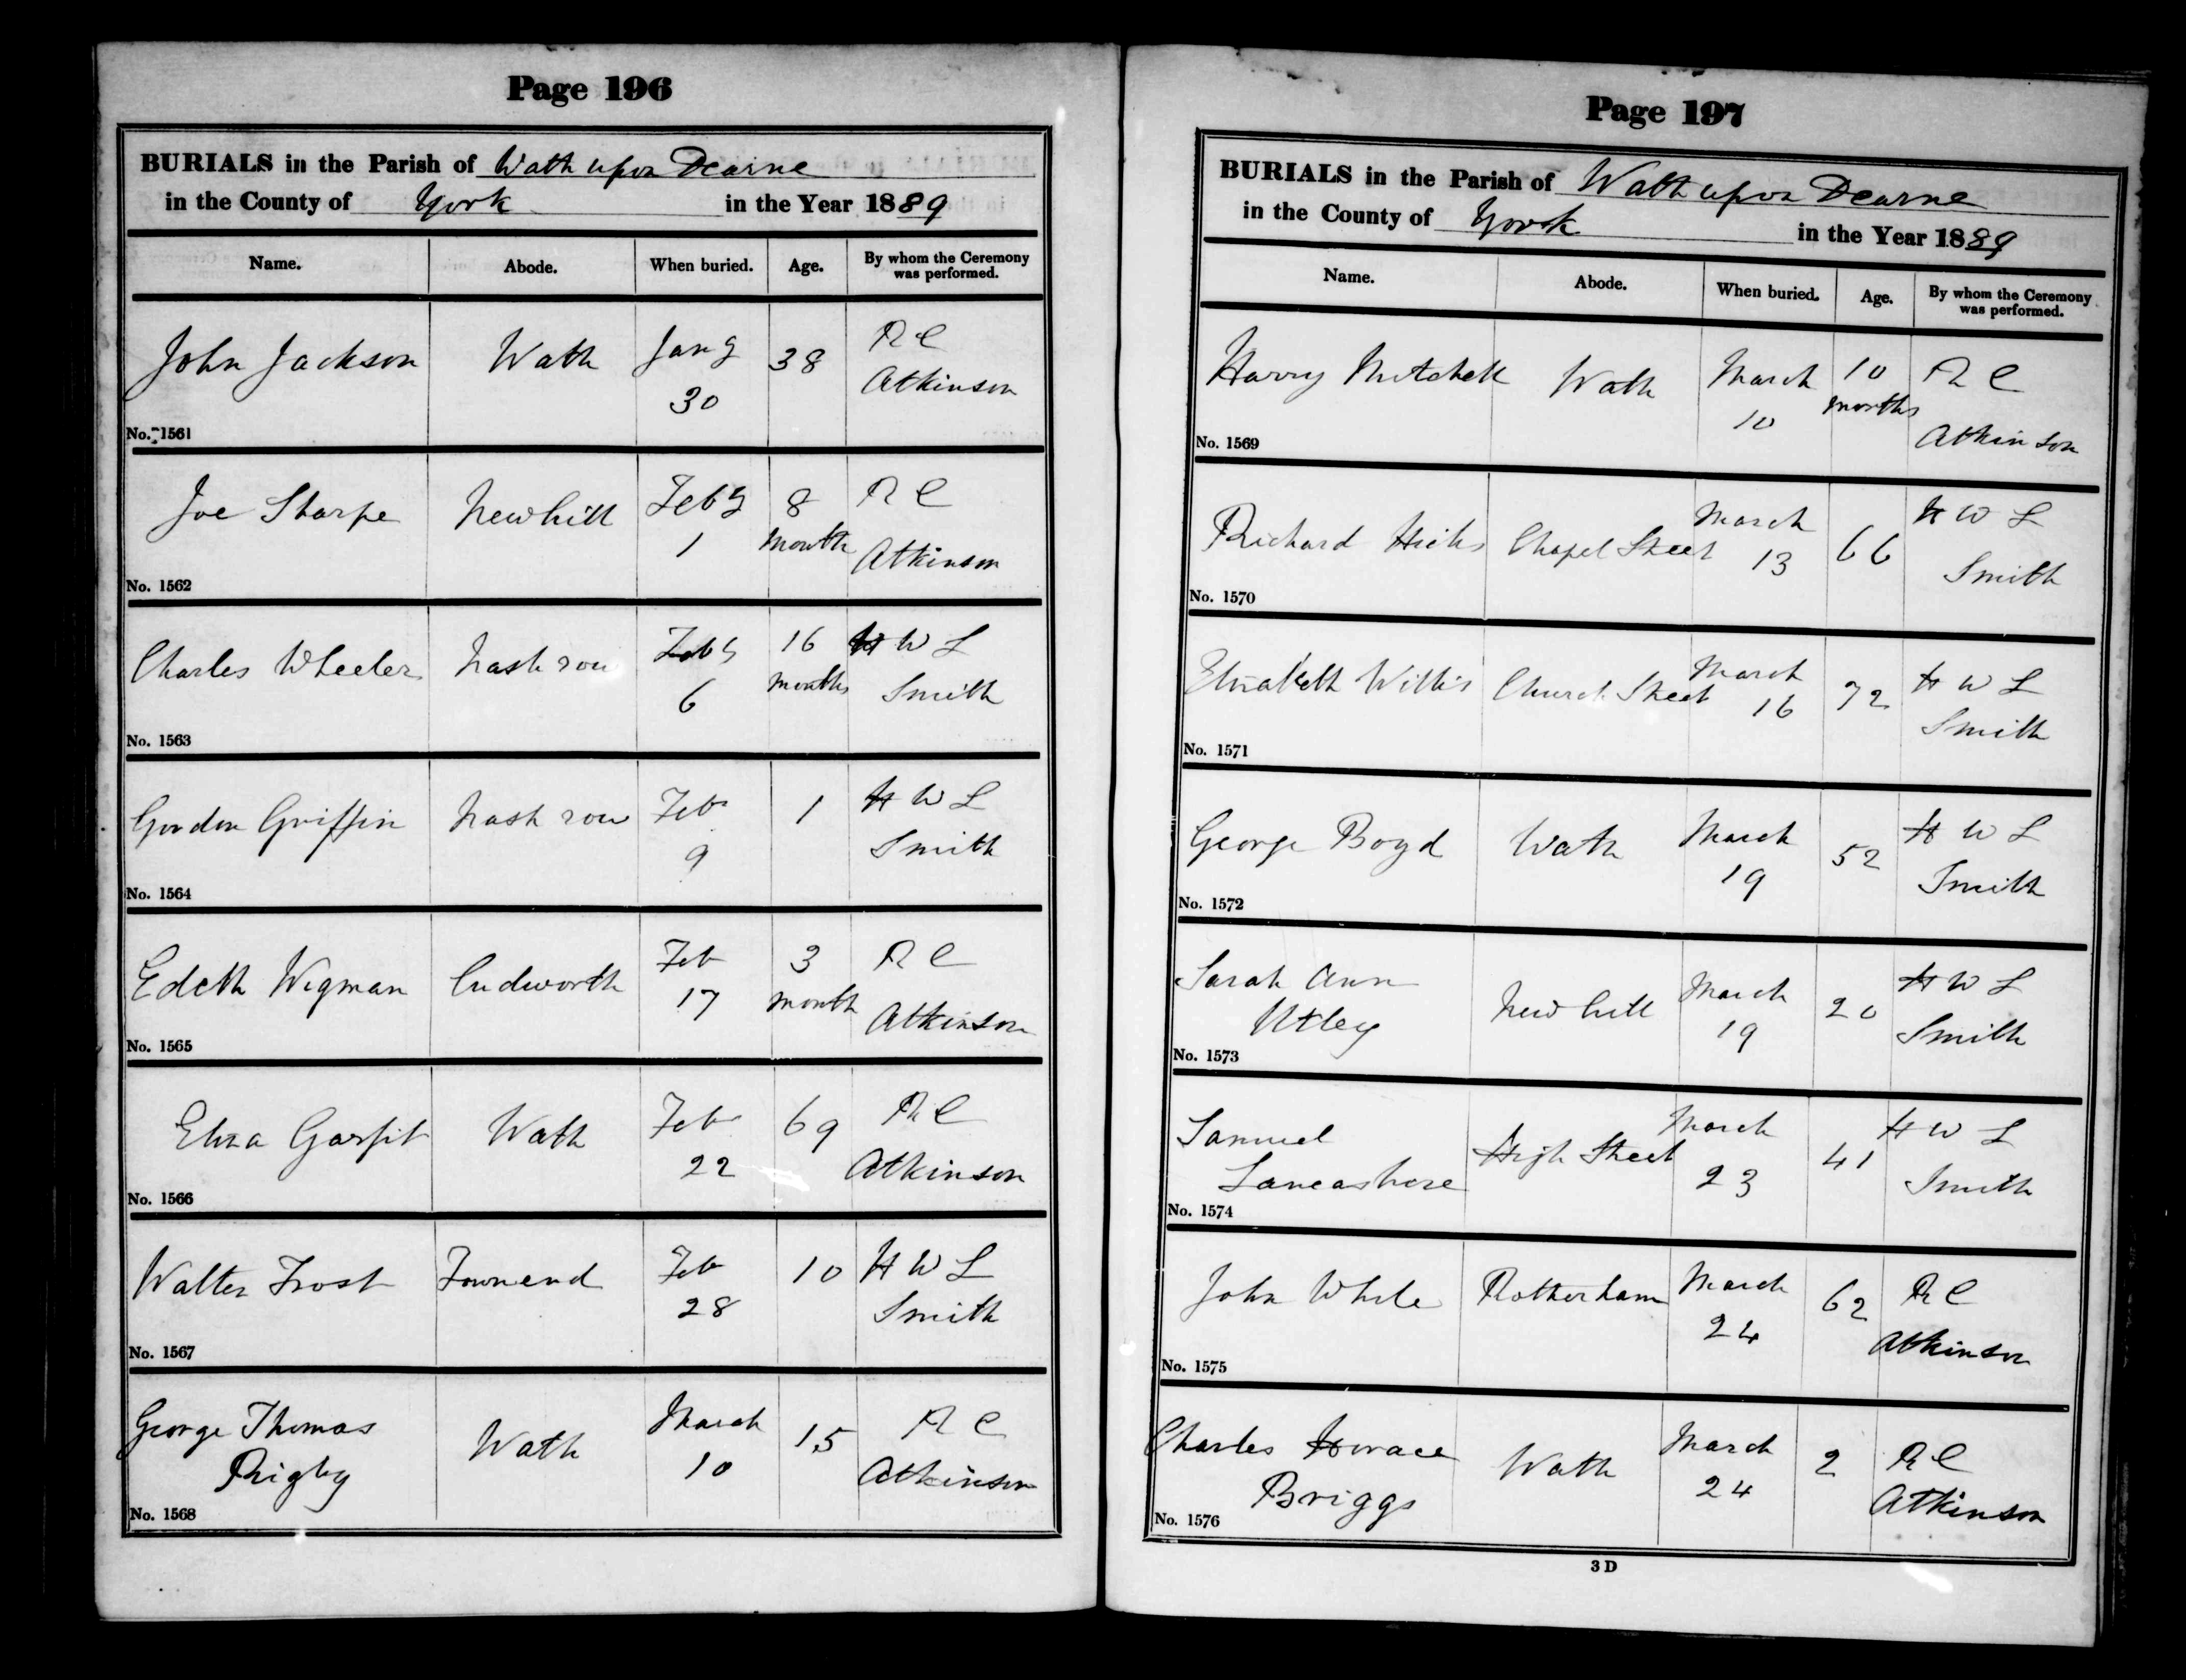 Page 196
BURIALS in the Parish of Wath upon Dearne
in the County of York in the Year 1889
Name. Abode. When buried. Age. By whom the Ceremony was performed.
John Jackson Wath Jany 30 38 R C Atkinson
No. 1561
Joe Sharpe Newhill Feby 1 8 month R C Atkinson
No. 1562
Charles Wheeler Nash row Feby 6 16 months H W L Smith
No. 1563
Gordon Griffin Nash row Feb 9 1 H W L Smith
No. 1564
Edith Wigman Cudworth Feb 17 3 month R C Atkinson
No. 1565
Eliza Garfit Wath Feb 22 69 R C Atkinson
No. 1566
Walter Frost Townend Feb 28 10 H W L Smith
No. 1567
George Thomas Rigby Wath March 10 15 R C Atkinson
No. 1568
Page 197
BURIALS in the Parish of Wath upon Dearne
in the County of York in the Year 1889
Name. Abode. When buried. Age. By whom the Ceremony was performed.
Harry Mitchell Wath March 10 10 months R C Atkinson
No. 1569
Richard Hicks Chapel Street March 13 66 H W L Smith
No. 1570
Elizabeth Willis Church Street March 16 72 H W L Smith
No. 1571
George Boyd Wath March 19 52 H W L Smith
No. 1572
Sarah Ann Utley Newhill March 19 20 H W L Smith
No. 1573
Samuel Lancashire High Street March 23 41 H W L Smith
No. 1574
John White Rotherham March 24 62 R C Atkinson
No. 1575
Charles Horace Briggs Wath March 24 2 R C Atkinson
No. 1576
3 D